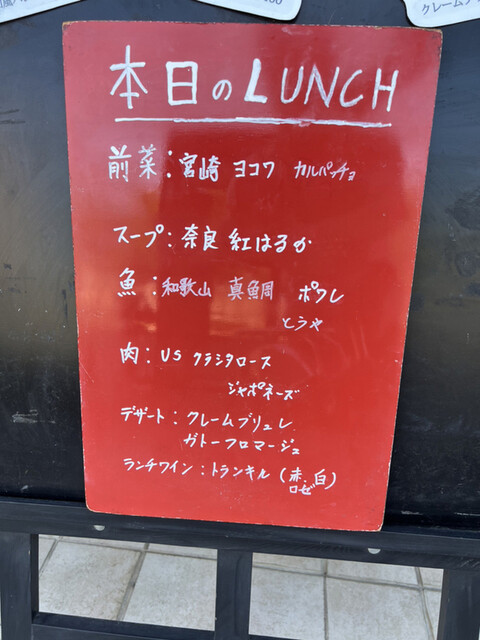 クレームブ
本日のLUNCH
前菜：宮崎 ヨコワ カルパッチョ
スープ：奈良 紅はるか
魚：和歌山 真鯛 ポワレ
とうや
肉：US クラシタロース
ジャポネーズ
デザート：クレームブリュレ
ガトーフロマージュ
ランチワイン：トランキル（赤・白）
ロゼ